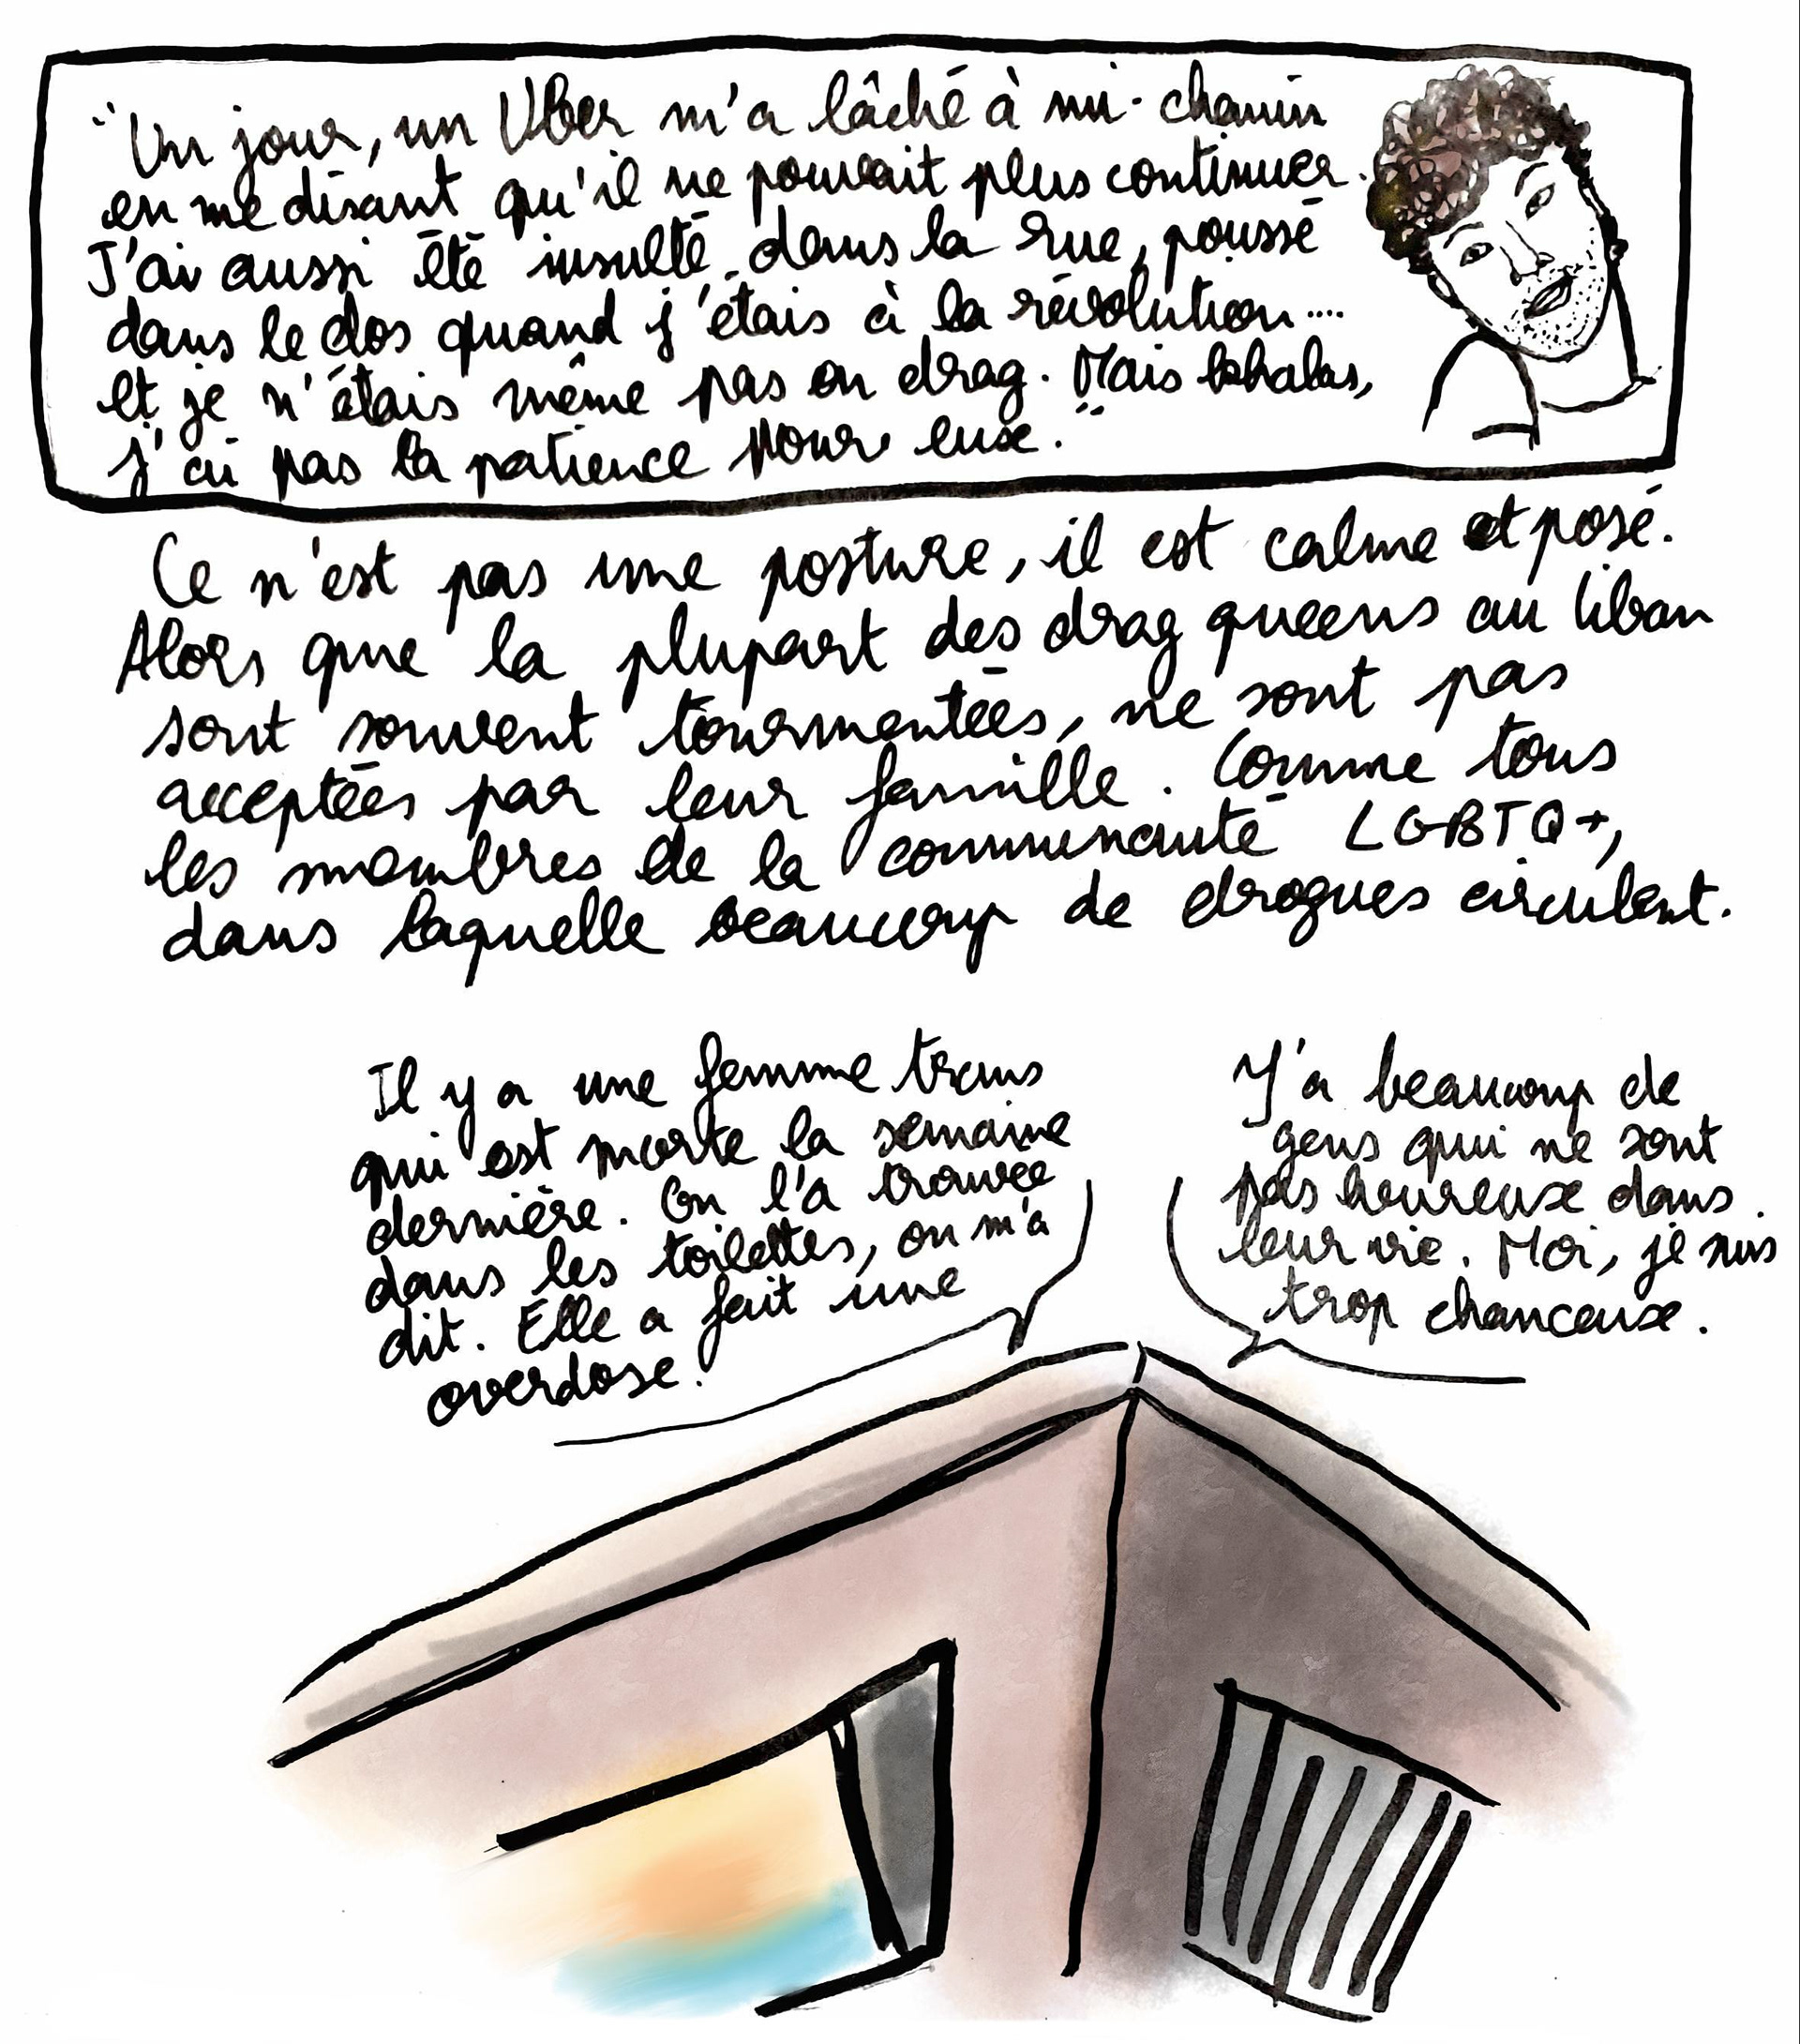 "Un jour, un Uber m'a lâché à mi-chemin
en me disant qu'il ne pouvait plus continuer.
J'ai aussi été insulté dans la rue, poussé
dans le dos quand j'étais à la révolution....
et je n'étais même pas en drag. Mais khalas,
j'ai pas la patience pour eux."
Ce n'est pas une posture, il est calme et posé.
Alors que la plupart des drag queens au Liban
sont souvent tourmentées, ne sont pas
acceptées par leur famille. Comme tous
les membres de la communauté LGBTQ+,
dans laquelle beaucoup de drogues circulent.
Il y a une femme trans
qui est morte la semaine
dernière. On l'a trouvée
dans les toilettes, on m'a
dit. Elle a fait une
overdose.
Y'a beaucoup de
gens qui ne sont
pas heureux dans
leur vie. Moi, je suis
trop chanceux.